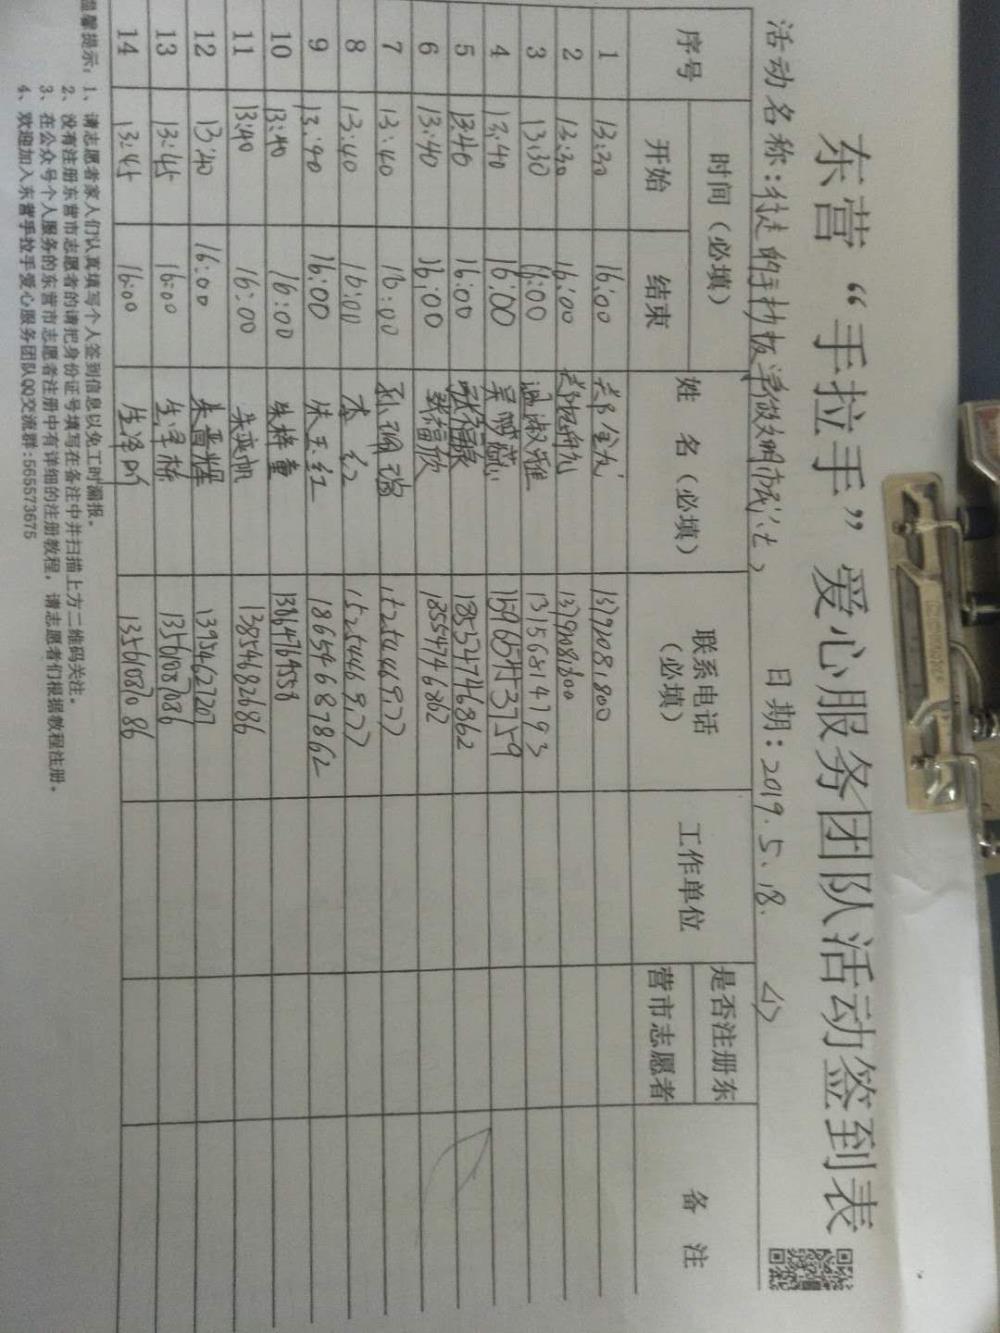 东营“手拉手”爱心服务团队活动签到表
活动名称：行走的手抄报 日期：2019.5.18.
序号 时间（必填） 姓 名（必填） 联系电话（必填） 工作单位 是否注册东营市志愿者 备 注
开始 结束
1 13:30 16:00 13792081800
2 13:30 16:00 13792081800
3 13:30 16:00 13156814793
4 13:40 16:00
5 13:40 16:00 18554746862
6 13:40 16:00 18554746862
7 13:40 16:00 15254446977
8 13:40 16:00 李红 15254446977
9 13:40 16:00 朱玉红 18654687862
10 13:40 16:00 朱梓童 13864764558
11 13:40 16:00 朱奕帆 13854682686
12 13:40 16:00 朱晋辉 13954627207
13 13:45 16:00 13561087086
14 13:45 16:00 13561087086
温馨提示：1、请志愿者家人们认真填写个人签到信息以免工时漏报。
2、没有注册东营市志愿者的请把身份证号填写在备注中并扫描上方二维码关注。
3、在公众号个人服务的东营市志愿者注册中有详细的注册教程，请志愿者们根据教程注册。
4、欢迎加入东营手拉手爱心服务团队QQ交流群:565573675